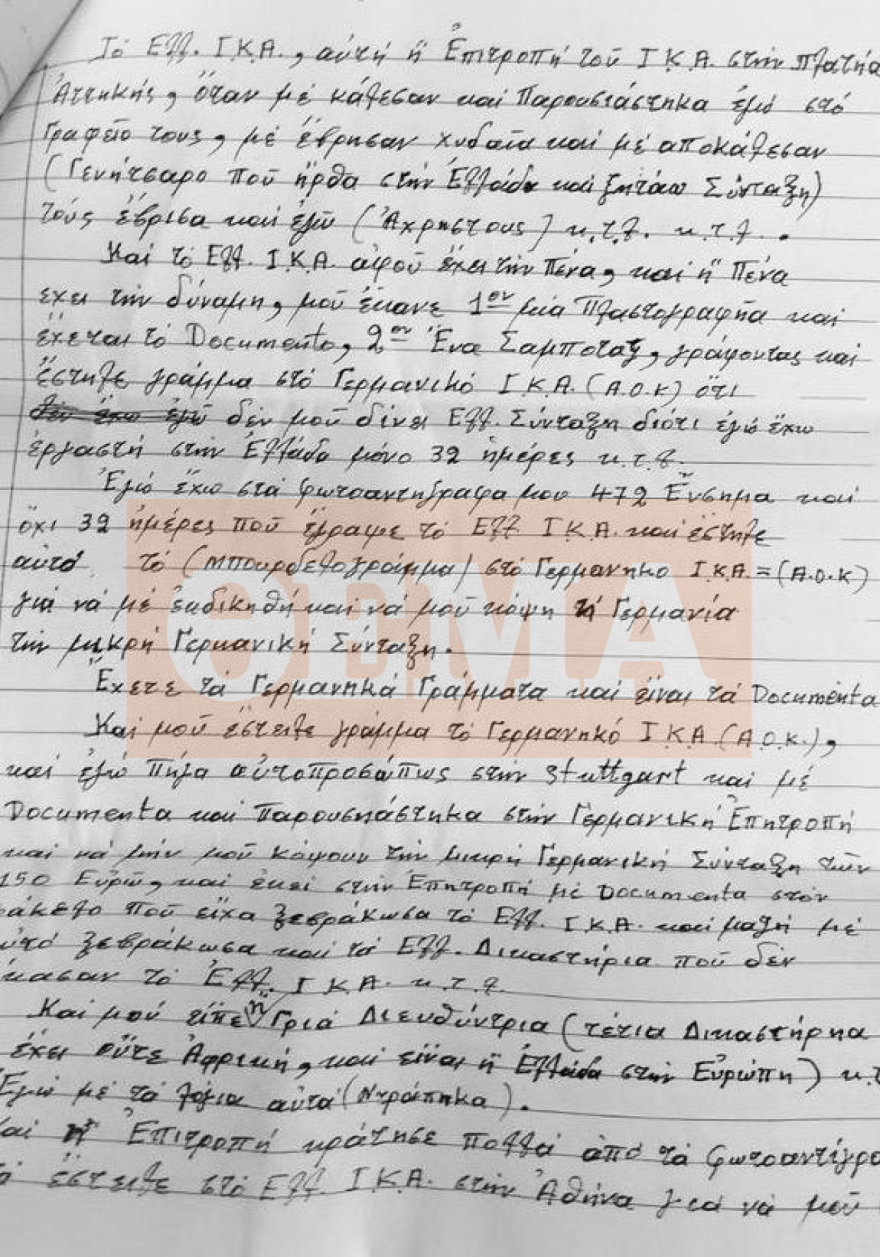 Τό Ελλ. Ι.Κ.Α., αὐτή ἡ Ἐπιτροπή τοῦ Ι.Κ.Α. στήν Πλατήα
Ἀττηκῆς, ὅταν μέ κάλεσαν καί Παρουσιάστηκα ἐγώ στό
Γραφεῖο τους, μέ ἔβρησαν χυδαῖα καί μέ αποκάλεσαν
(Γενήτσαρο ποῦ ἦρθα στήν Ἑλλάδα καί ζητάω Σύνταξη)
τούς ἔβρισα καί ἐγώ (Ἀχρηστους) κ.τ.λ. κ.τ.λ.
Καί τό Ελλ. Ι.Κ.Α. αφοῦ ἔχει τήν Πένα, καί ἡ Πένα
εχει τήν δύναμη, μοῦ ἔκανε 1ον μία Πλαστογραφηα καί
ἔχεται τό Documento, 2ον Ἕνα Σαμποταζ, γράφοντας καί
ἔστηλε γράμμα στό Γερμανικό Ι.Κ.Α. (Α.Ο.Κ) ὅτι
δέν ἔχω ἐγώ δέν μοῦ δίνει Ελλ. Σύνταξη διότι ἐγώ ἔχω
ἐργαστή στήν Ἑλλάδα μόνο 32 ἡμέρες κ.τ.λ.
Ἐγώ ἔχω στά φωτοαντηγραφα μου 472 Ἔνσημα καί
ὄχι 32 ἡμέρες ποῦ ἔγραψε τό Ελλ Ι.Κ.Α. καί ἔστηλε
αὐτό τό (μπουρδελογράμμα) στό Γερμανηκο Ι.Κ.Α. = (Α.Ο.Κ)
γιά νά μέ ἐκδικηθή καί νά μοῦ κόψη ἡ Γερμανία
τήν μικρή Γερμανική Σύνταξη.
Ἔχετε τά Γερμανηκά Γράμματα καί εἶναι τά Documenta
Καί μοῦ ἔστειλε γράμμα τό Γερμανηκό Ι.Κ.Α. (Α.Ο.Κ.),
καί ἐγώ πῆγα αὐτοπροσώπως στήν Stuttgart καί μέ
Documenta καί Παρουσηάστηκα στήν Γερμανική Ἐπητροπή
καί νά μήν μοῦ κόψουν τήν μικρή Γερμανική Σύνταξη τῶν
150 Εὐρώ, καί ἐκεῖ στήν Ἐπητροπή μέ Documenta στόν
άκελο ποῦ εἶχα ξεβράκωσα τό Ελλ. Ι.Κ.Α. καί μαζή μέ
υτό ξεβράκωσα καί τά Ελλ. Δικαστήρια ποῦ δέν
ίκασαν τό Ἑλλ. Ι.Κ.Α. κ.τ.λ.
Και μού εἶπε ἡ Γριά Διευθύντρια (τέτια Δικαστήρηα
ἔχει οὔτε Ἀφρική, καί εἶναι ἡ Ἑλλάδα στήν Εὐρώπη) κ.τ
Ἐγώ μέ τά λόγια αὐτά (Ντράπηκα).
Καί ἡ Ἐπιτροπή κράτησε πολλά ἀπό τά φωτοαντίγρα
ά ἔστειλε στό Ελλ. Ι.Κ.Α. στήν Ἀθήνα γιά νά μοῦ
ΘΕΜΑ